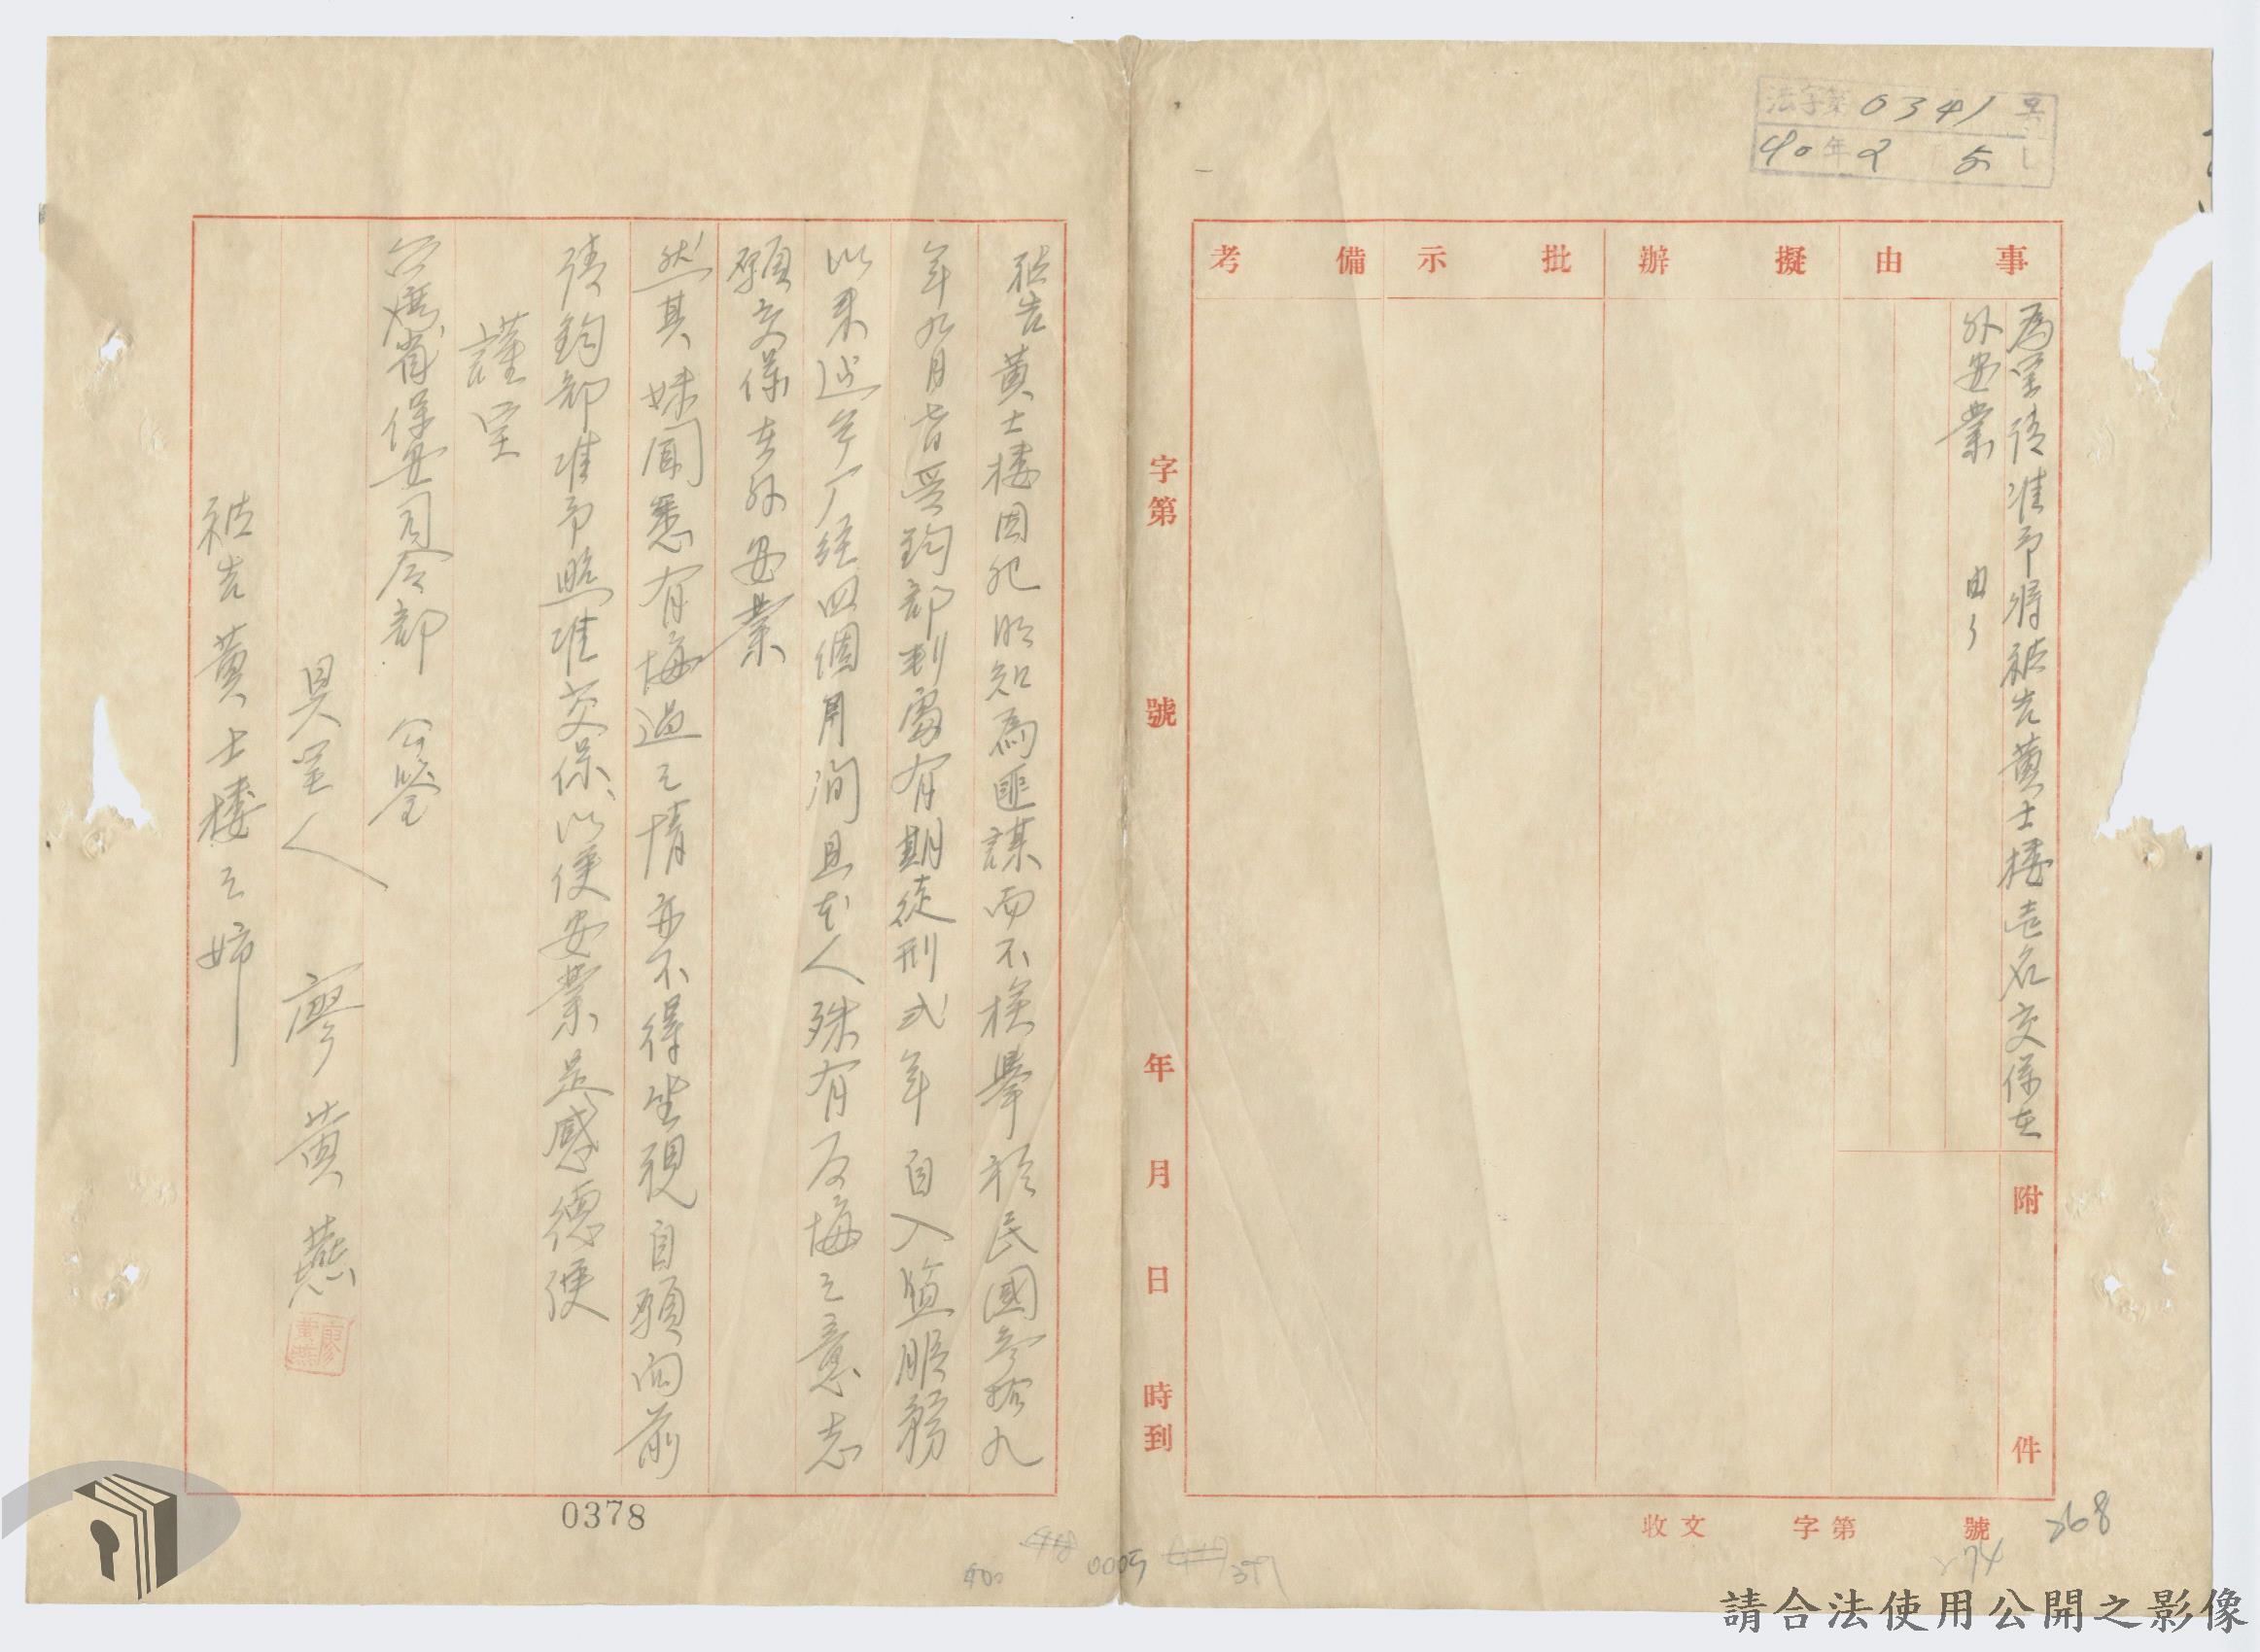 法字第0341号
40年2 5
事由
擬辦
批示
備考
為呈請准予將被告黃士樓壱名交保在
外安業 由
附件
字第 號 年 月 日 時到
收文 字第 號
268
274
被告黃士樓因犯明知為匪諜而不檢舉於民國參拾九
年九月省受鈞部判處有期徒刑弍年自入監服務
以來迄今已經四個月間且本人殊有反悔之意志
願交保在外安業
然其妹聞悉有悔過之情亦不得坐視自願向前
請鈞部准予照准交保以便安業足感德便
謹呈
台灣省保安司令部 公鑒
具呈人 廖黃燕
廖黃燕
被告黃士樓之姉
0378
400
0005
399
請合法使用公開之影像